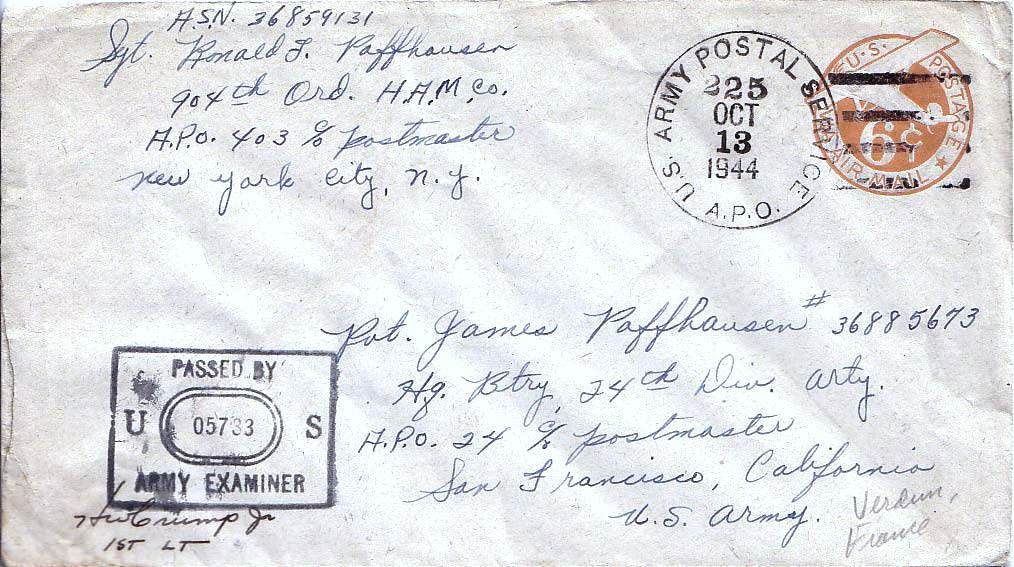 A.S.N. 36859131
Sgt. Ronald F. Paffhausen
904th Ord. H.A.M. Co.
A.P.O. 403 c/o postmaster
New York City, N.Y.
U.S. ARMY POSTAL SERVICE
225
OCT
13
1944
A.P.O.
U.S. POSTAGE
6¢
VIA AIR MAIL
Pvt. James Paffhausen # 36885673
Hq. Btry, 24th Div. Arty.
A.P.O. 24 c/o postmaster
San Francisco, California
U.S. Army.
Verdun,
France
PASSED BY
U 05733 S
ARMY EXAMINER
HW Crump Jr
1ST LT